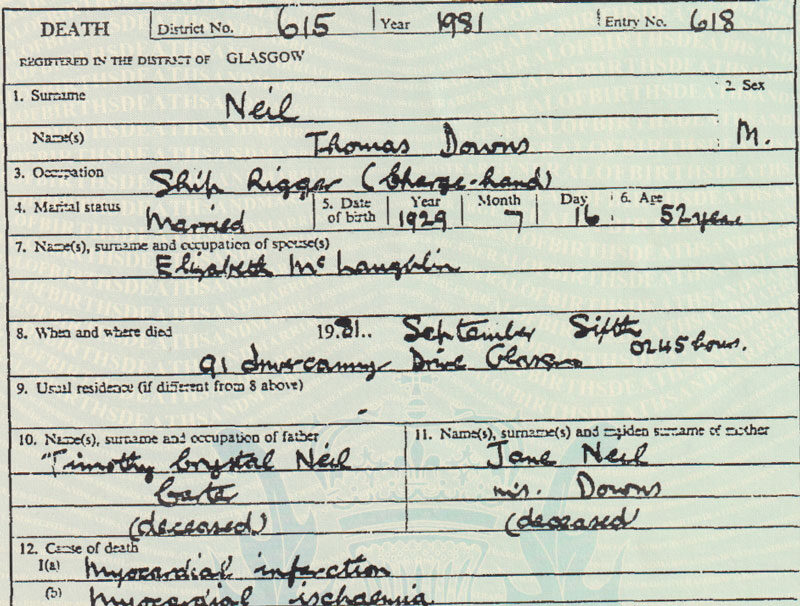 DEATH District No. 615 Year 1981 Entry No. 618
REGISTERED IN THE DISTRICT OF GLASGOW
1. Surname Neil 2. Sex
Name(s) Thomas Downs M.
3. Occupation Ship Rigger (Charge-hand)
4. Marital status Married 5. Date of birth Year 1929 Month 7 Day 16 6. Age 52 years
7. Name(s), surname and occupation of spouse(s)
Elizabeth McLaughlin
8. When and where died 1981.. September Sixth
0245 hours.
91 Invercanny Drive Glasgow
9. Usual residence (if different from 8 above)
-
10. Name(s), surname and occupation of father 11. Name(s), surname(s) and maiden surname of mother
Timothy Crystal Neil Jane Neil
Carter m.s. Downs
(deceased) (deceased)
12. Cause of death
I(a) Myocardial infarction
(b) Myocardial ischaemia